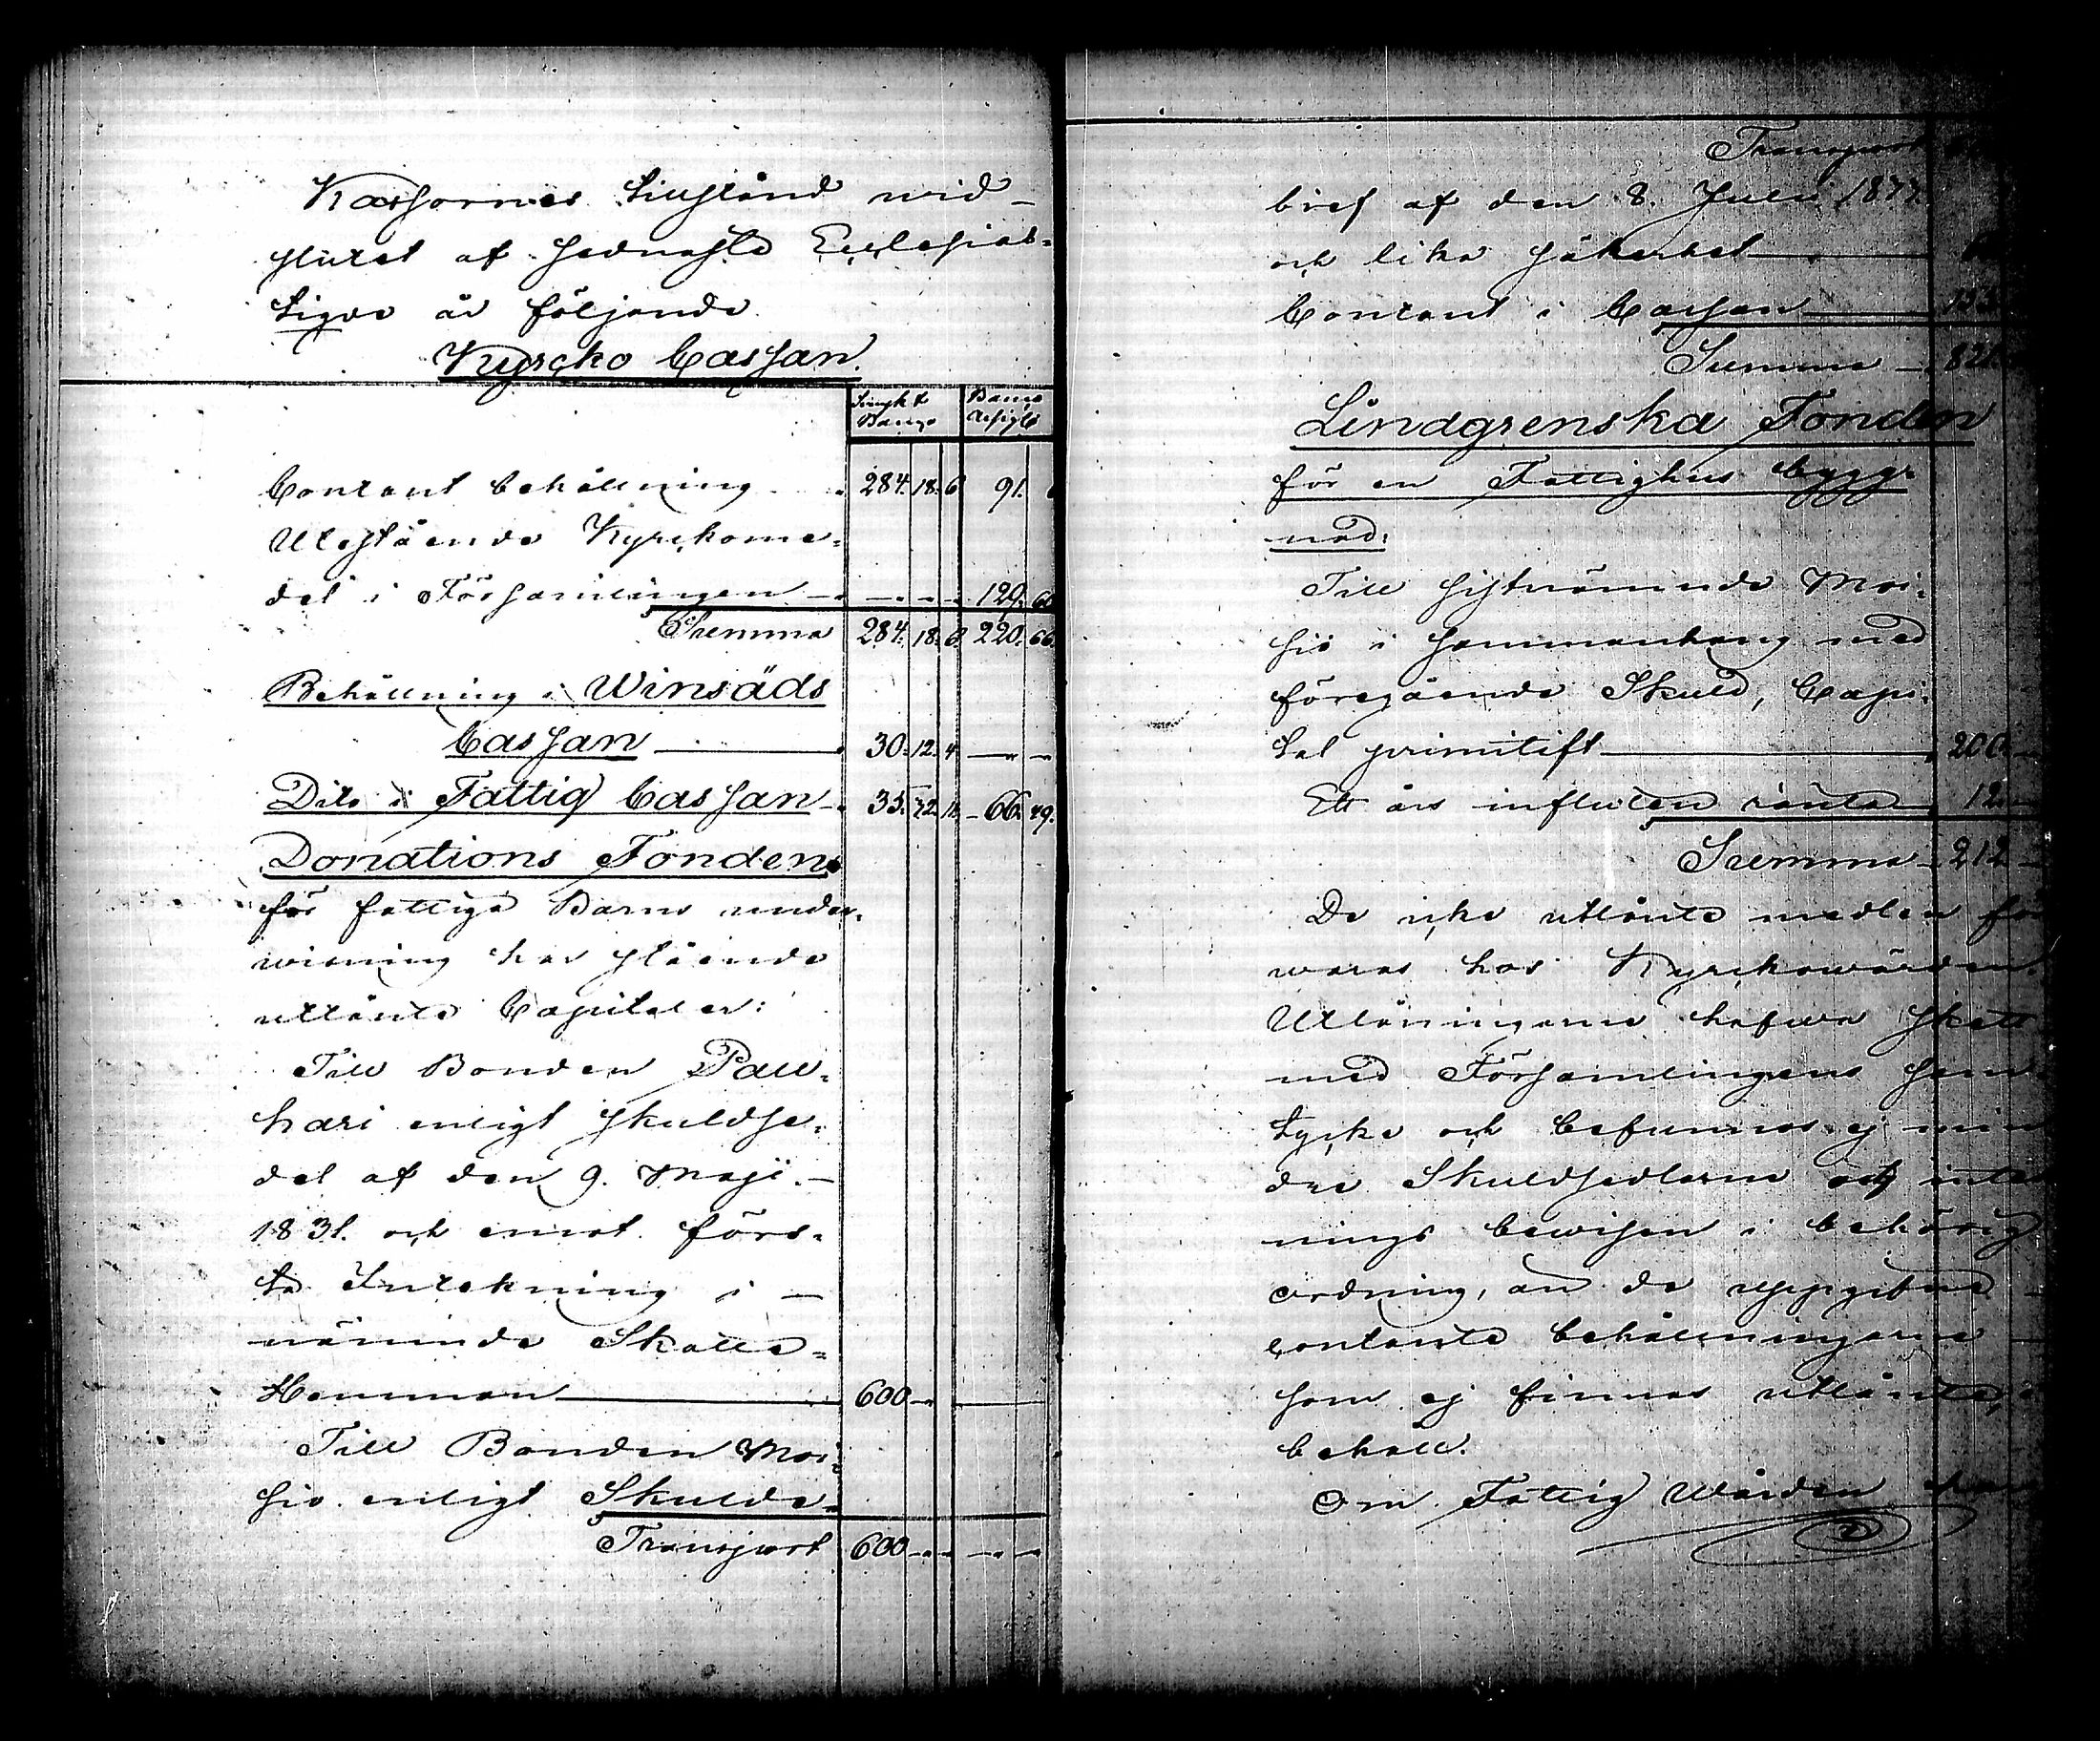 Kassornes tillstånd wid
slutet af sednaste Ecclesias-
tigve är följande
Kyrcko Cassan.
Contant behållning 284. 18. 6 91.
Utestående Kyrckome-
del i Församlingen — — — 129. 66
Summa 284. 18. 6. 220. 66.
Behållning i Winsäds
Cassan 30. 12. 4 — —
Dito i Fattig Cassan 35. 22. 11. 66. 29.
Donations Fonden
för fattiga Barns under-
wisning har stående
utlånte Capitaler:
Till Bonden Pau-
hari enligt skuldse-
del af den 9. Maji
1831. och emot förs-
ta Inteckning i
nämnde Skatte-
Hemman 600 — —
Till Bonden Moi-
sio enligt Skulde-
Transport 600 — — — —
Transport
bref af den 8. Julii 187
och lika säkerhet
Contant i Cassan 153
Summa 821
Lindgrenska Fonden
för en Fattighus bygg-
nad.
Till sistnämnde Moi-
sio i sammanhang med
föregående Skuld, Capi-
tal primitift 200
Ett års influten ränta 12
Summa 212
De icke utlånte medlen för
waras hos Kyrckowärden.
Utlåningarne hafwa skett
med Församlingens sam
tycke och befunnos ej min
dre Skuldsedlarne och inteck
nings bewisen i behörig
ordning, än de uppgifne
contante behållningarne
som ej finnas utlånte, i
behåll.
Om Fattig Wården har